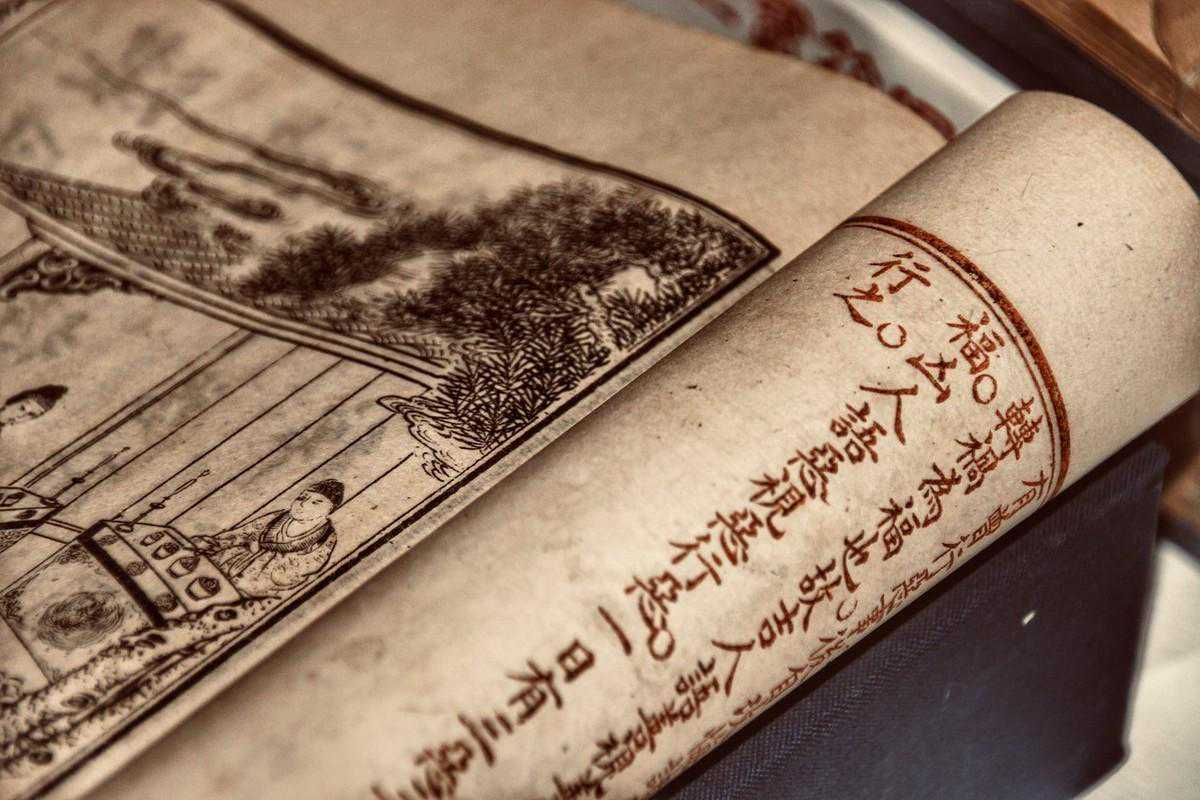 有曾行惡事後自
轉禍為福也○故吉人語善視善
福○凶人語惡視惡行惡○一日有三惡
行之○